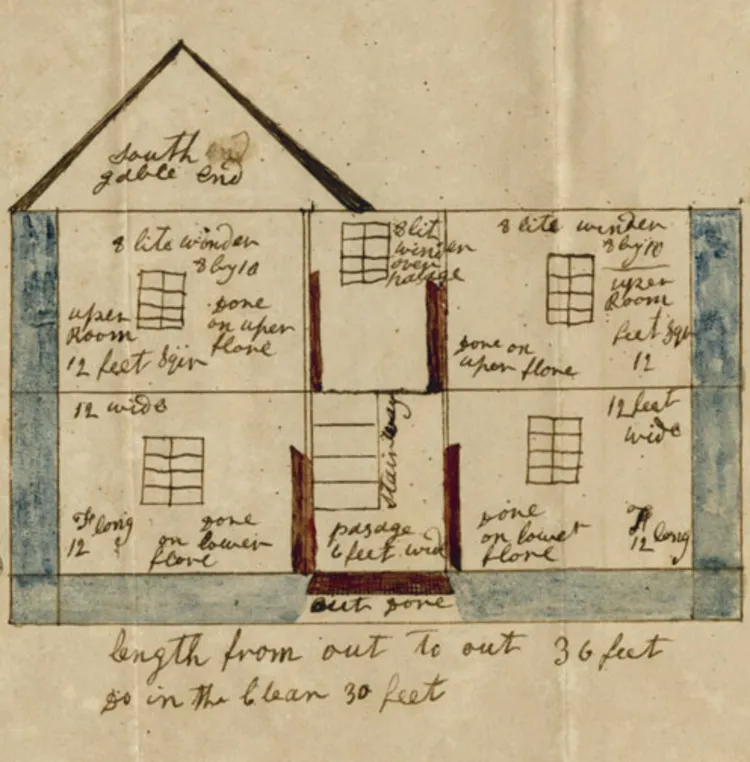 south end
gable end
8 lite winder
8 by 10
Dore
on uper
flore
uper
Room
12 feet Sqir
8 lit
winder
over
pasage
8 lite winder
8 by 10
uper
Room
feet Sqr
12
Dore on
uper flore
12 wide
12 feet
wide
Stairway
F long
12
Dore
on lower
flore
pasage
6 feet wid
Dore
on lower
flore
F
12 long
out Dore
length from out to out 36 feet
Do in the Clear 30 feet